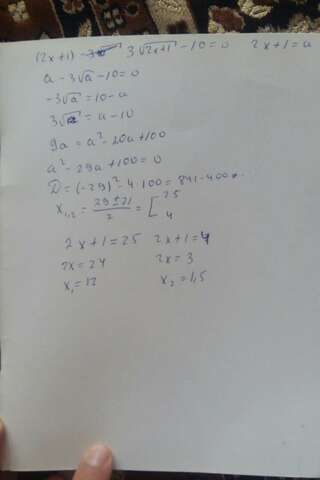 (2x+1) - 3√2x+1 - 10 = 0 2x+1=a
a - 3√a - 10 = 0
-3√a = 10 - a
3√a = a - 10
9a = a² - 20a + 100
a² - 29a + 100 = 0
D = (-29)² - 4·100 = 841 - 400
x₁,₂ = 29±21/2 = [ 25 4
2x+1=25 2x+1=4
2x=24 2x=3
x₁=12 x₂=1,5